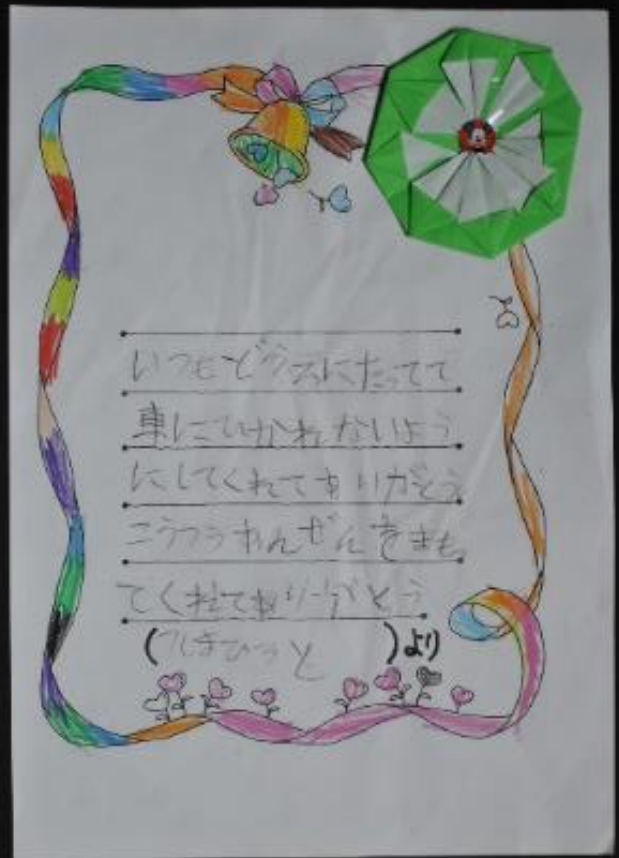 いつもどうろにたってて
車にひかれないよう
にしてくれてありがとう
こうつうあんぜんをまも
てくれてありがとう
( ひろと )より